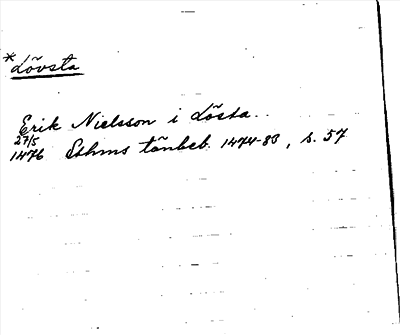 *Lövsta
Erik Nielsson i Lösta..
27/5
1476 Sthms tänkeb. 1474-83, s. 57